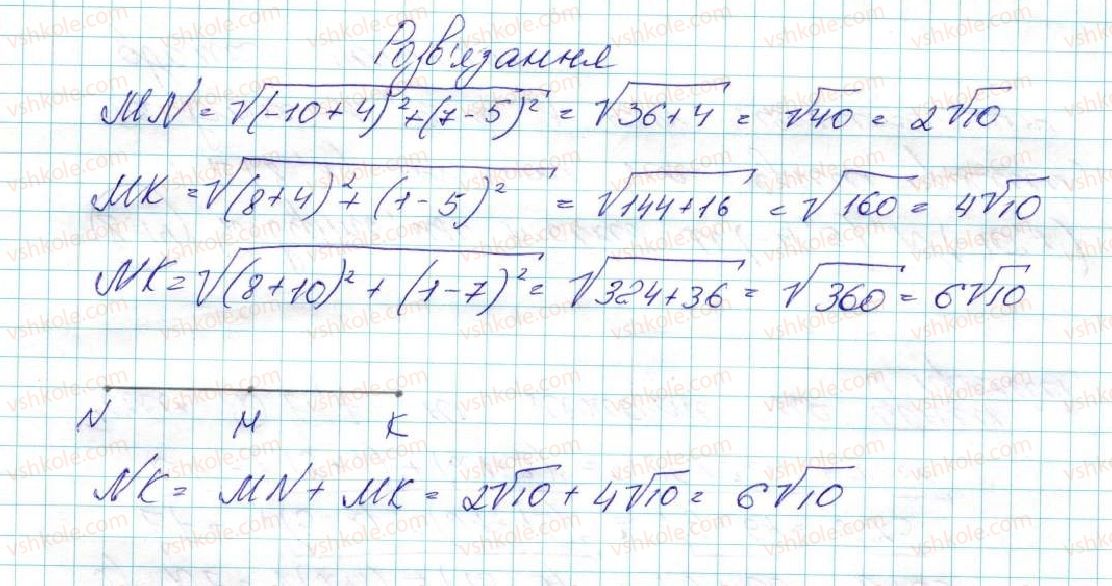 Розв'язання
MN = √((-10+4)²+(7-5)²) = √(36+4) = √40 = 2√10
MK = √((8+4)²+(1-5)²) = √(144+16) = √160 = 4√10
NK = √((8+10)²+(1-7)²) = √(324+36) = √360 = 6√10
N M K
NK = MN + MK = 2√10 + 4√10 = 6√10
vshkole.com